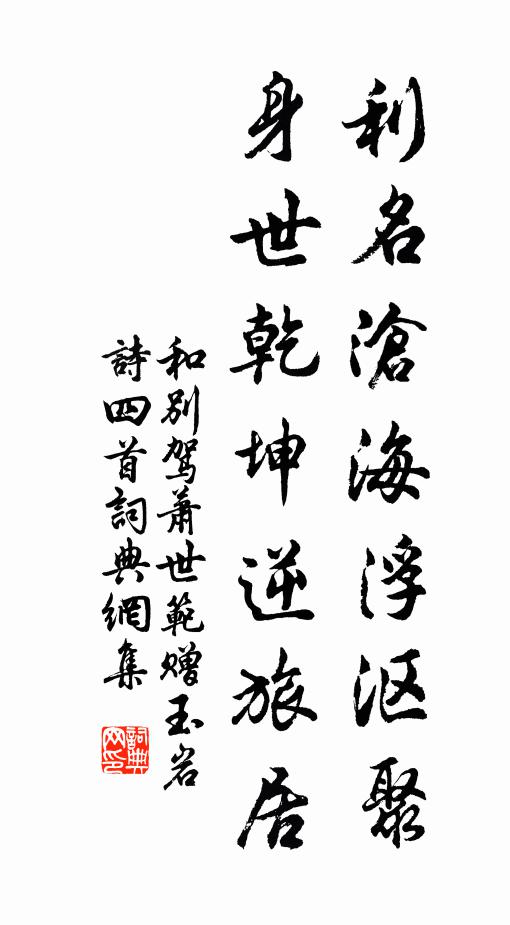 利名滄海浮沤聚
身世乾坤逆旅居
和别駕蕭世範赠玉岩
詩四首詞典網集
詞典网印